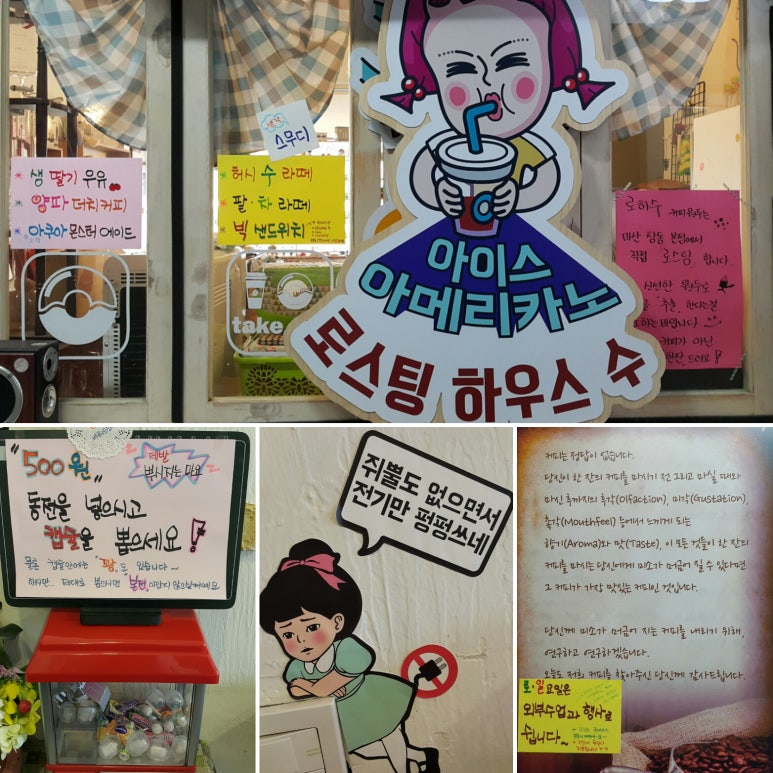 생각
스무디
* 생 딸기 우유
* 양파 더치커피
* 아쿠아 몬스터 에이드
* 허시 수 라떼
* 팥·차 라떼
* 빅 샌드위치
take
아이스
아메리카노
로스팅 하우스 수
로하수 커피원두는
마산 창동 본점에서
직접 로스팅 합니다.
신선한 원두로
추출 한다는걸
하는바입니다
커피가 아닌
한잔, 드려요!
"500원"
제발
부시지는 마요
동전을 넣으시고
캡슐을 뽑으세요!
물론 캡슐안에는 "꽝"도 있습니다~
하지만 제대로 뽑으시면 본전이상이지 않으실까해요
쥐뿔도 없으면서
전기만 펑펑쓰네
커피는 정답이 없습니다.
당신이 한 잔의 커피를 마시기 전 그리고 마실 때와
마신 후까지의 후각(Olfaction), 미각(Gustation),
촉각(Mouthfeel) 등에서 느끼게 되는
향기(Aroma)와 맛(Taste), 이 모든 것들이 한 잔의
커피를 마시는 당신에게 미소가 머금어 질 수 있다면
그 커피가 가장 맛있는 커피인 것입니다.
당신께 미소가 머금어 지는 커피를 내리기 위해,
연구하고 연구하겠습니다.
오늘도 저희 커피를 찾아주신 당신께 감사드립니다.
토·일요일은
외부수업과 행사로
쉽니다~